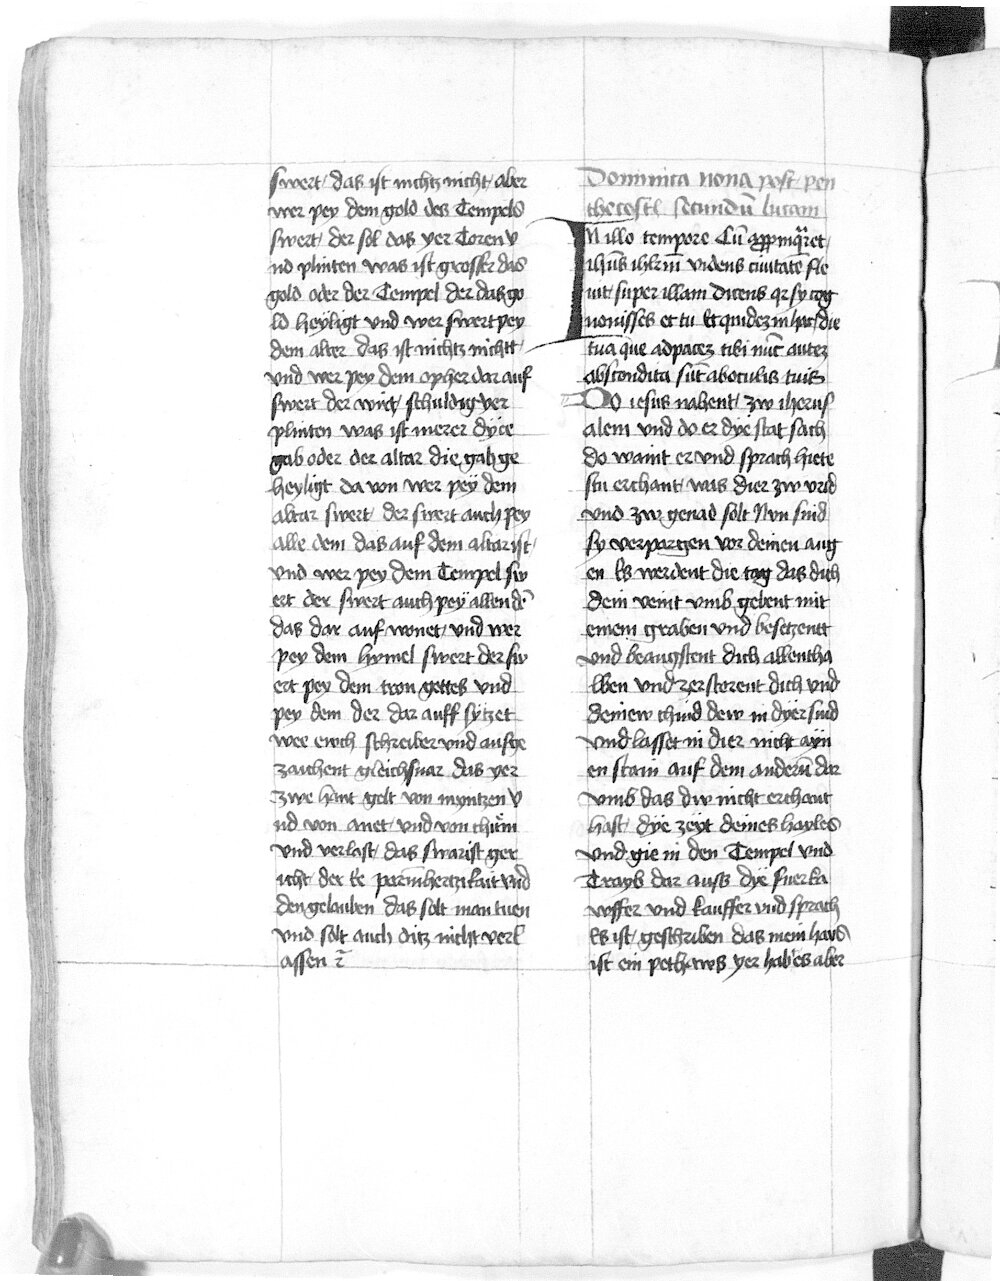 swert das ist nichtz nicht aber
wer pey dem gold des Tempels
swert der sol das yer Toren v
nd plinten was ist grosser das
gold oder der Tempel der das go
ld heyligt vnd wer swert pey
dem alter das ist nichtz nichtt
vnd wer pey dem opher dar auf
swert der wirt schuldig yer
plinten was ist merer dye
gab oder der altar die gab ge
heyligt da von wer pey dem
altar swert der swert auch pey
alle dem das auf dem altar ist
vnd wer pey dem Tempel sw
ert der swert auch pey allen dē
das dar auf wonet vnd wer
pey dem hymel swert der sw
ert pey dem tron gottes vnd
pey dem der dar auff sytzet
wee ewch schreiber vnd aufge
zaichent gleichsnar das yer
zwe hant gelt von myntzen v
nd von anet vnd von chūm
vnd verlast das swarist ger
icht der ee parmhertzikait vnd
den gelauben das solt man tuen
vnd solt auch ditz nicht verl
assen
Dominica nona post pen
thecostē secundū lucam
In illo tempore Cū appinq̄ret
ihūs ihrlm̄ videns ciuitatē fle
uit super illam dicens qr sy cog
nouisses et tu Et quidez in hac die
tua que ad pacez tibi nūc autez
abscondita sūt ab oculis tuis
Do iesus nahent zw iherus
alem vnd do er dye stat sach
do waint er vnd sprach hiete
stu erchant was dier zw vrid
vnd zw genad solt Nvn sind
sy verporgen vor deinen aug
en Es werdent die tag das dich
dein veint vmb gebent mit
einem graben vnd besetzentt
vnd beaugstent dich allentha
lben vnd zerstorent dich vnd
deinew chind dew in dyer sind
vnd lasset in dier nicht ayn
en stain auf dem anderū dar
vmb das dw nicht erchant
hast dye zeyt deines hayles
vnd gie in den Tempel vnd
Trayb dar auss dye fuerka
wffer vnd kauffer vnd sprach
Es ist geschriben das mein haus
ist ein pethaws yer habes aber